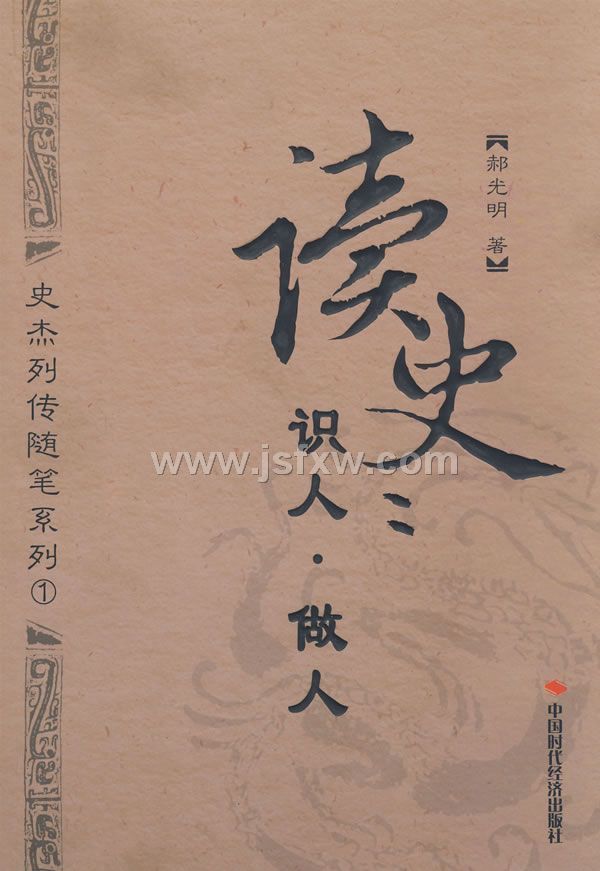 【郝光明 著】
读史：
识人·做人
史杰列传随笔系列①
www.jsfxw.com
中国时代经济出版社